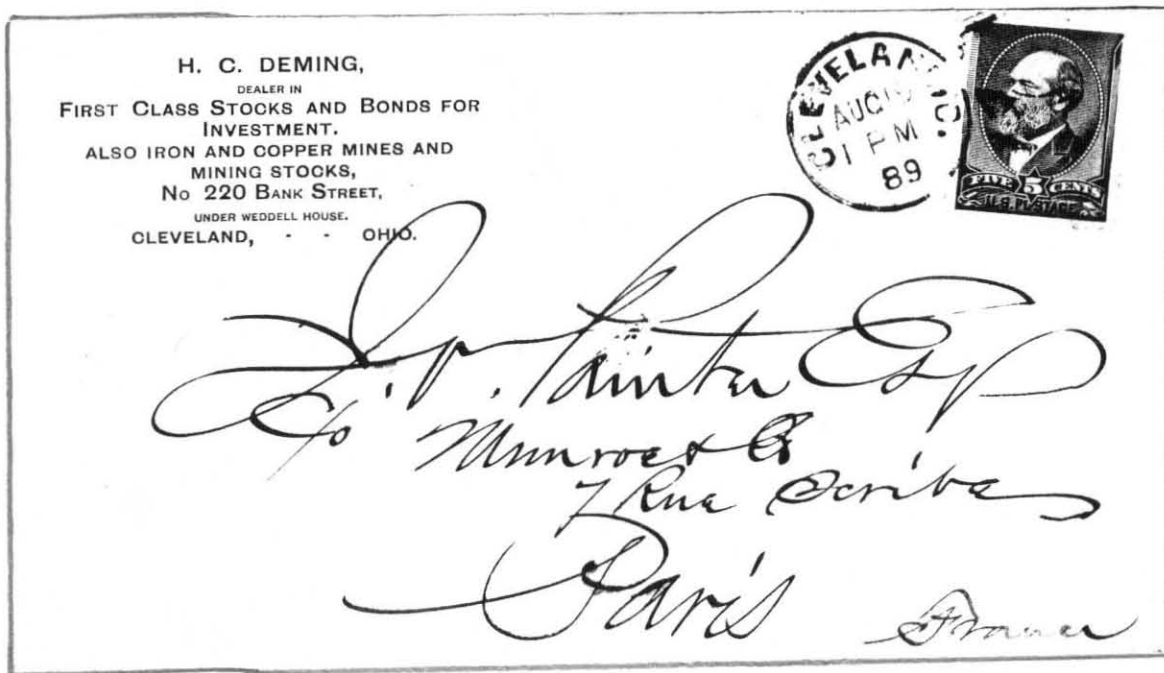 H. C. DEMING,
DEALER IN
FIRST CLASS STOCKS AND BONDS FOR
INVESTMENT.
ALSO IRON AND COPPER MINES AND
MINING STOCKS,
No 220 BANK STREET,
UNDER WEDDELL HOUSE.
CLEVELAND, - - OHIO.
CLEVELAND
AUG
1 PM
89
FIVE 5 CENTS
U.S. POSTAGE
J. V. Painter Esq
c/o Munroe & Co
7 Rue Scribe
Paris
France